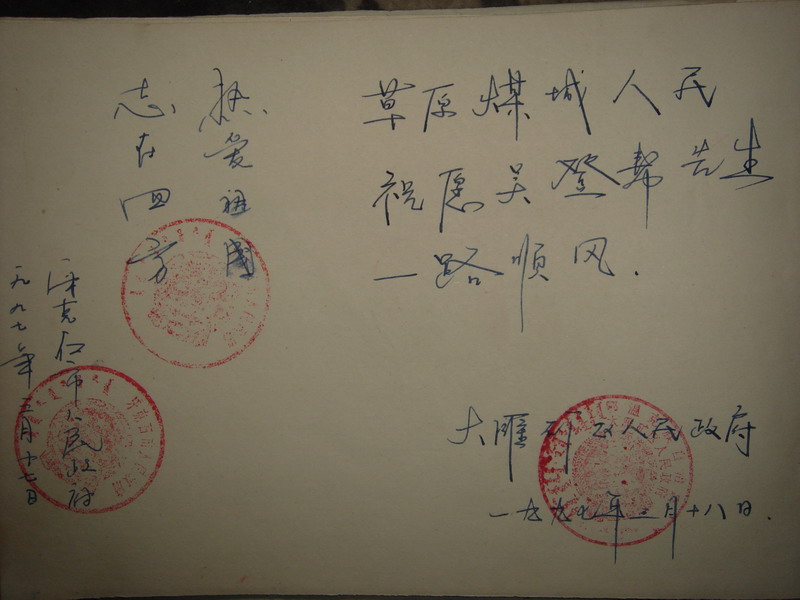 热爱祖國
志在四方
牙克石市人民政府
一九九七年三月十七日
草原煤城人民
祝愿吴登帮先生
一路顺风.
大雁矿区人民政府
一九九七年三月十八日.